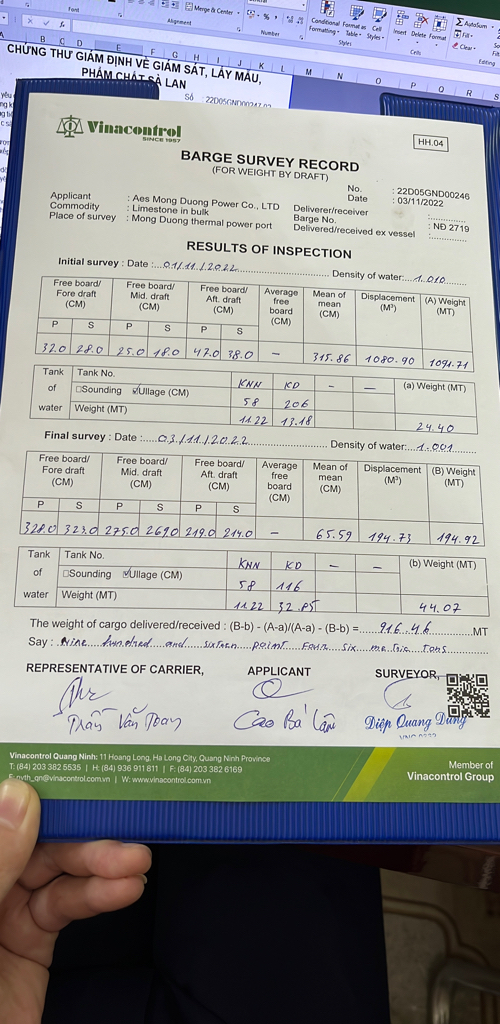 Merge & Center
Conditional Formatting
Format as Table
Cell Styles
Insert
Delete
Format
AutoSum
Fill
Clear
Alignment
Number
Styles
Cells
Editing
CHỨNG THƯ GIÁM ĐỊNH VỀ GIÁM SÁT, LẤY MẪU,
PHẨM CHẤT SÀ LAN
Số : 22D05GND00247-02
Vinacontrol
SINCE 1957
HH.04
BARGE SURVEY RECORD
(FOR WEIGHT BY DRAFT)
No. : 22D05GND00246
Date : 03/11/2022
Applicant : Aes Mong Duong Power Co., LTD
Deliverer/receiver :
Commodity : Limestone in bulk
Barge No. : NĐ 2719
Place of survey : Mong Duong thermal power port
Delivered/received ex vessel :
RESULTS OF INSPECTION
Initial survey : Date : 01/11/2022 Density of water: 1.010
Free board/ Fore draft (CM) Free board/ Mid. draft (CM) Free board/ Aft. draft (CM) Average free board (CM) Mean of mean (CM) Displacement (M³) (A) Weight (MT)
P S P S P S
32.0 28.0 25.0 18.0 47.0 38.0 – 315.86 1080.90 1091.71
Tank of water Tank No. KNN KD – – (a) Weight (MT)
□Sounding ☑Ullage (CM) 58 206
Weight (MT) 11.22 13.18 24.40
Final survey : Date : 03/11/2022 Density of water: 1.001
Free board/ Fore draft (CM) Free board/ Mid. draft (CM) Free board/ Aft. draft (CM) Average free board (CM) Mean of mean (CM) Displacement (M³) (B) Weight (MT)
P S P S P S
328.0 323.0 275.0 269.0 219.0 214.0 – 65.59 194.73 194.92
Tank of water Tank No. KNN KD – – (b) Weight (MT)
□Sounding ☑Ullage (CM) 58 116
Weight (MT) 11.22 32.85 44.07
The weight of cargo delivered/received : (B-b) - (A-a)/(A-a) - (B-b) = 916.46 MT
Say : Nine hundred and sixteen point four six metric tons
REPRESENTATIVE OF CARRIER, APPLICANT SURVEYOR,
Trần Văn Toan Cao Bá Lâm Diệp Quang Dũng
Vinacontrol Quang Ninh: 11 Hoang Long, Ha Long City, Quang Ninh Province
T: (84) 203 382 5535 | H: (84) 936 911 811 | F: (84) 203 382 6169
E: gvth_qn@vinacontrol.com.vn | W: www.vinacontrol.com.vn
Member of
Vinacontrol Group